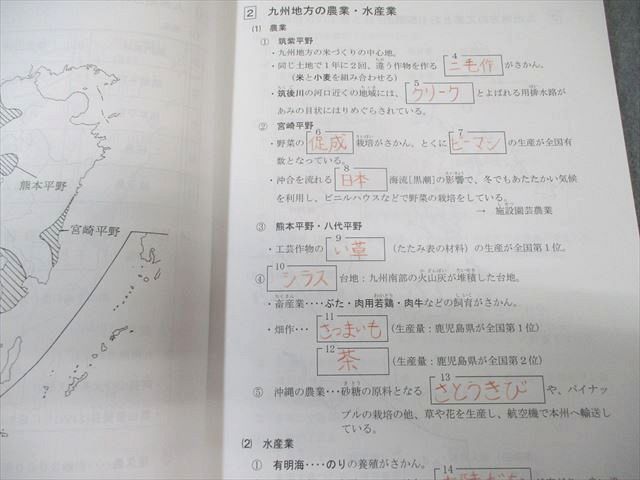 2 九州地方の農業・水産業
(1) 農業
① 筑紫平野
・九州地方の米づくりの中心地。
・同じ土地で1年に2回、違う作物を作る 4 二毛作 がさかん。
(米と小麦を組み合わせる)
・筑後川の河口近くの地域には、 5 クリーク とよばれる用排水路が
あみの目状にはりめぐらされている。
② 宮崎平野
・野菜の 6 促成 栽培がさかん。とくに 7 ピーマン の生産が全国有
数となっている。
・沖合を流れる 8 日本 海流[黒潮]の影響で、冬でもあたたかい気候
を利用し、ビニルハウスなどで野菜の栽培をしている。
→ 施設園芸農業
③ 熊本平野・八代平野
・工芸作物の 9 い草 (たたみ表の材料)の生産が全国第1位。
④ 10 シラス 台地：九州南部の火山灰が堆積した台地。
・畜産業・・・・ぶた・肉用若鶏・肉牛などの飼育がさかん。
・畑作・・・ 11 さつまいも (生産量：鹿児島県が全国第1位)
12 茶 (生産量：鹿児島県が全国第2位)
⑤ 沖縄の農業・・・砂糖の原料となる 13 さとうきび や、パイナッ
プルの栽培の他、草や花を生産し、航空機で本州へ輸送し
ている。
(2) 水産業
① 有明海・・・・のりの養殖がさかん。 14
熊本平野
宮崎平野